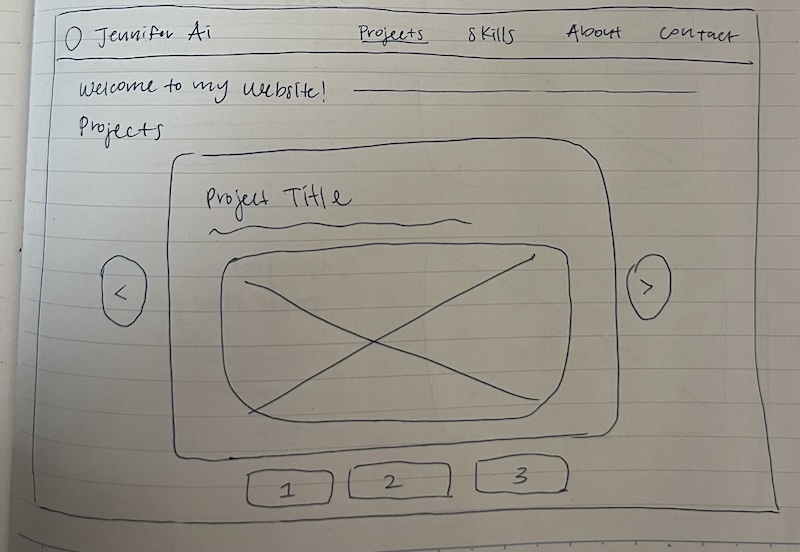 Jennifer Ai Projects Skills About Contact
Welcome to my website!
Projects
Project Title
< >
1 2 3